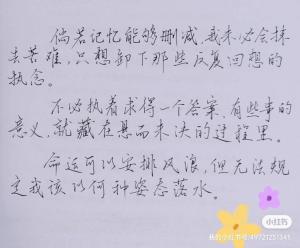 倘若记忆能够删减，我未必会抹
去苦难，只想卸下那些反复回想的
执念。
不必执着求得一个答案，有些事的
意义，就藏在悬而未决的过程里。
命运可以安排风浪，但无法规
定我该以何种姿态落水。
小红书
我的小红书号49721251341